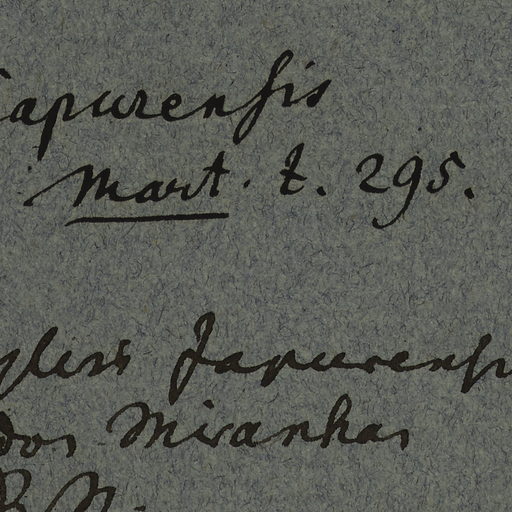 iapurensis
Mart. t. 295.
Japurensi
dos Miranhas